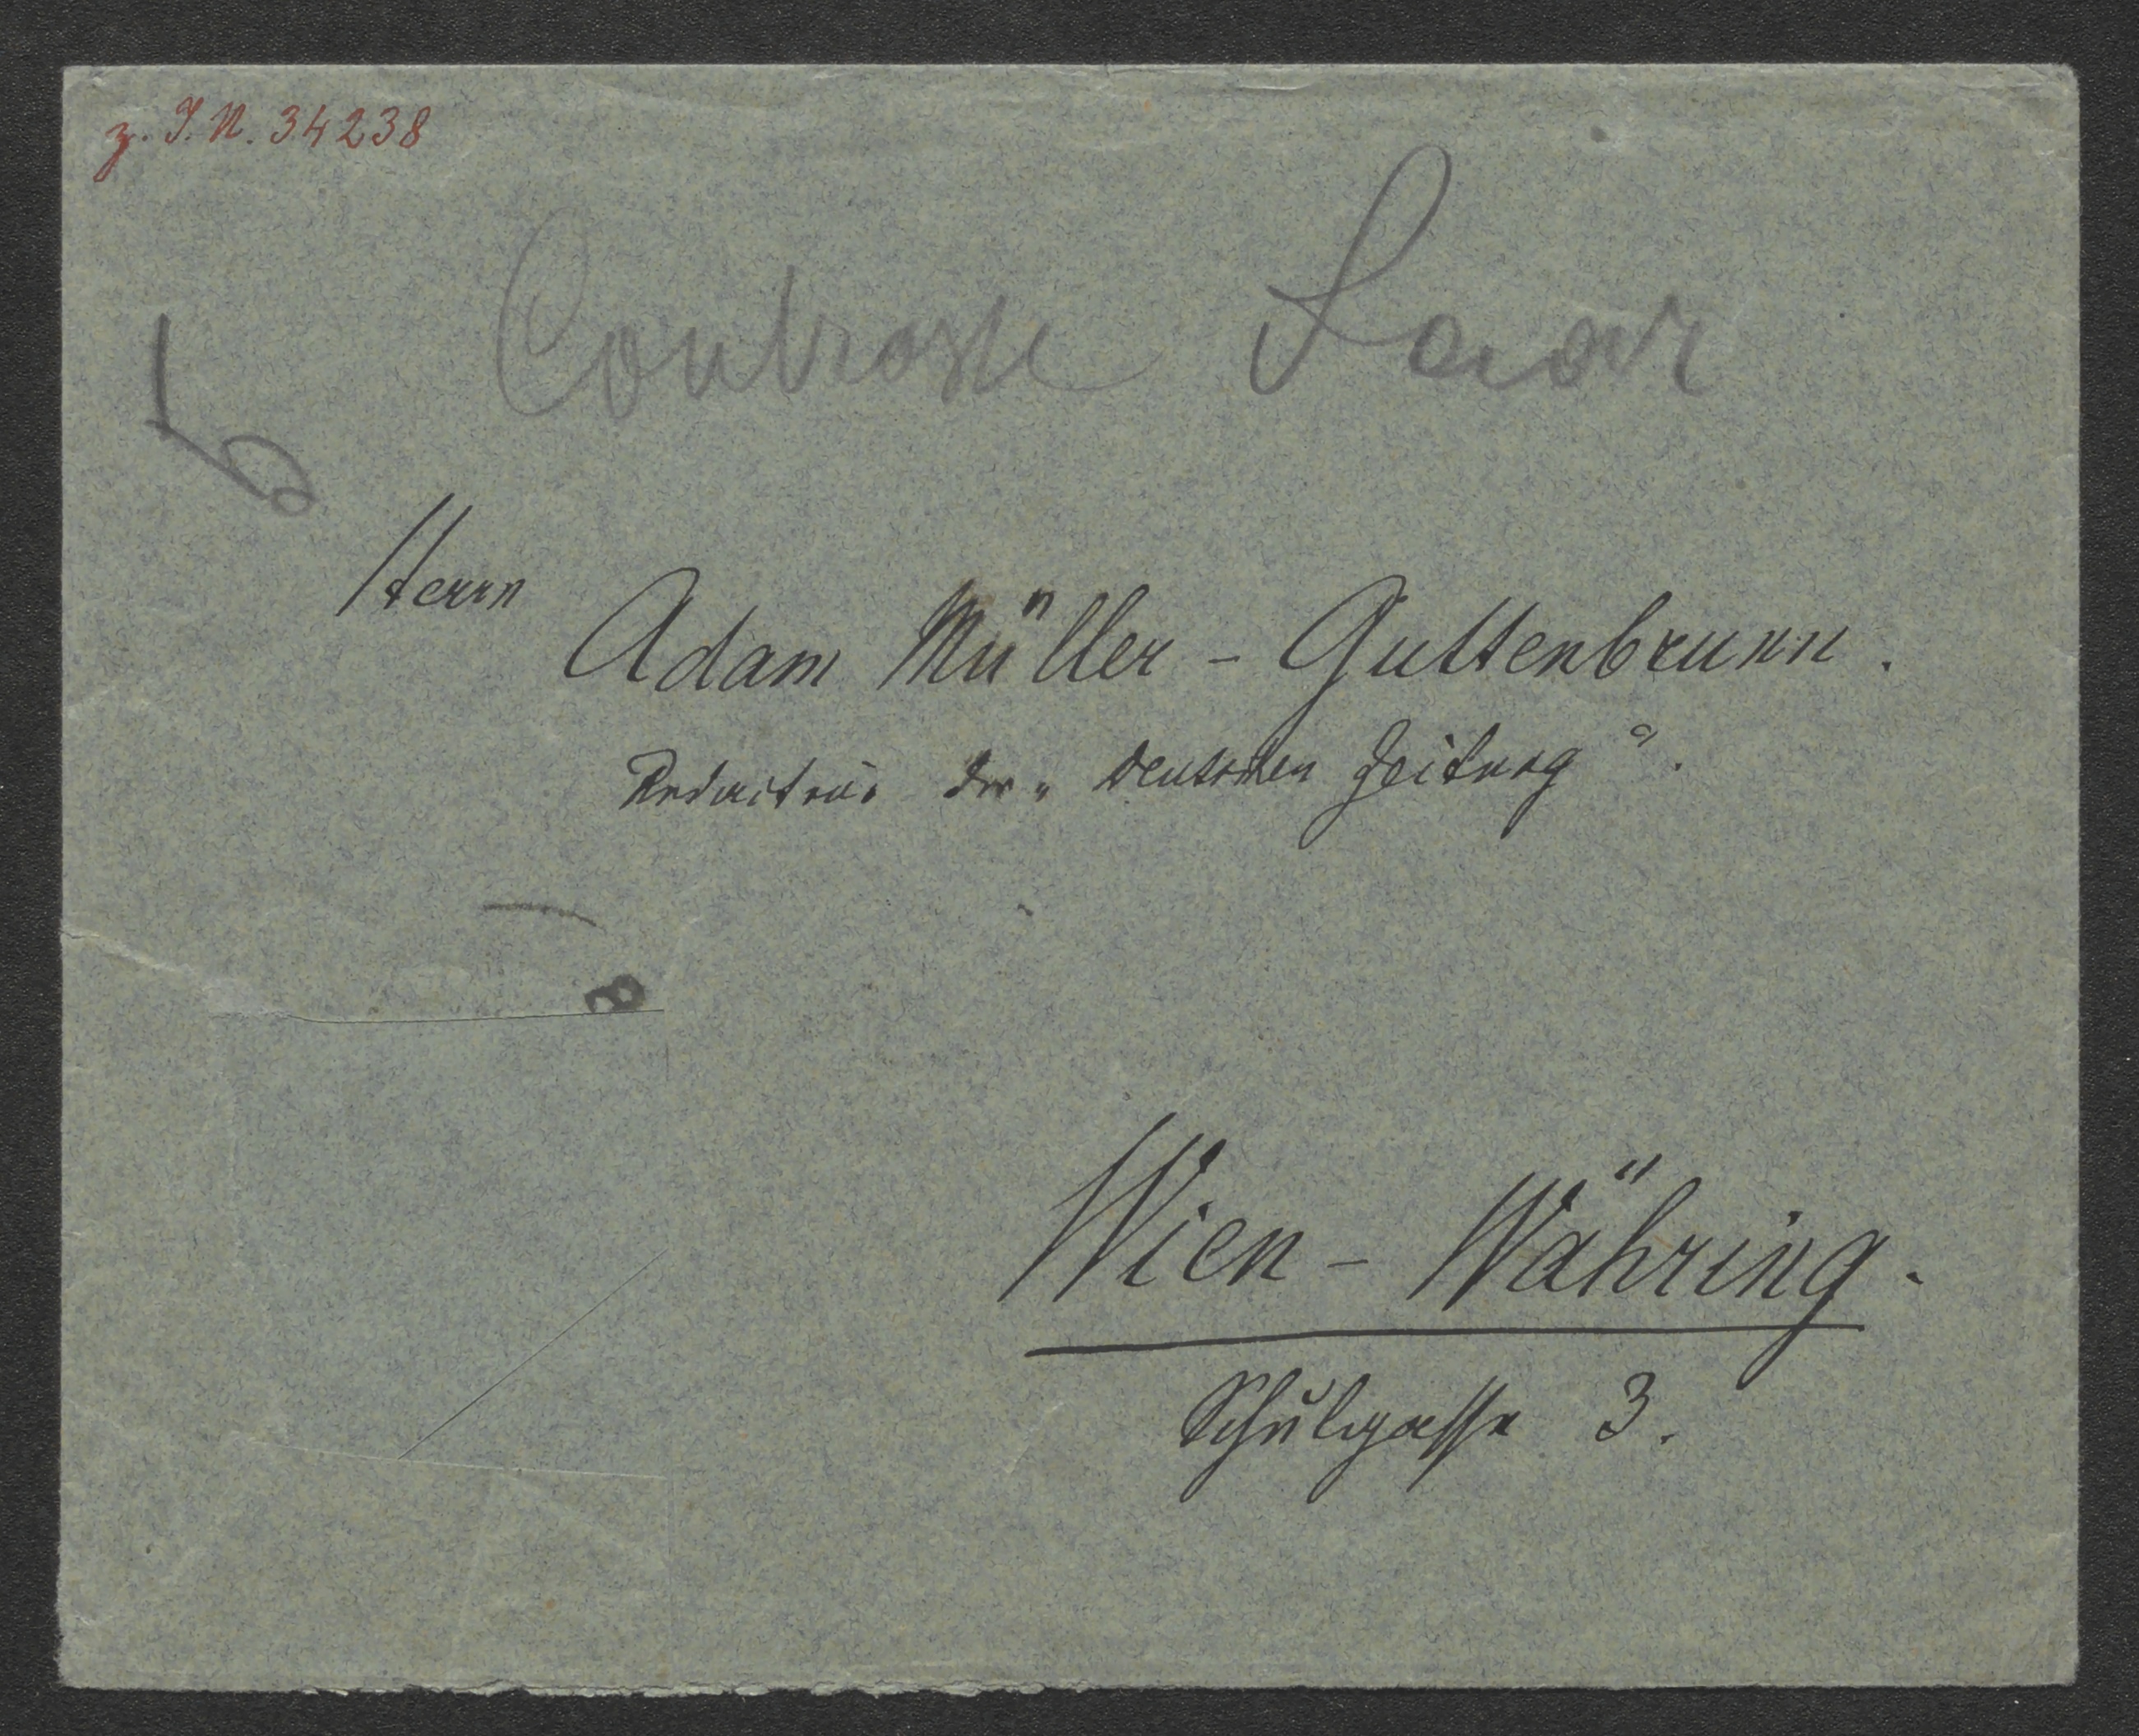 z. I. N. 34238
Contraste Saar
Herrn
Adam Müller - Guttenbrunn.
Redacteur der „Deutschen Zeitung“.
Wien - Währing.
Schulgasse 3.